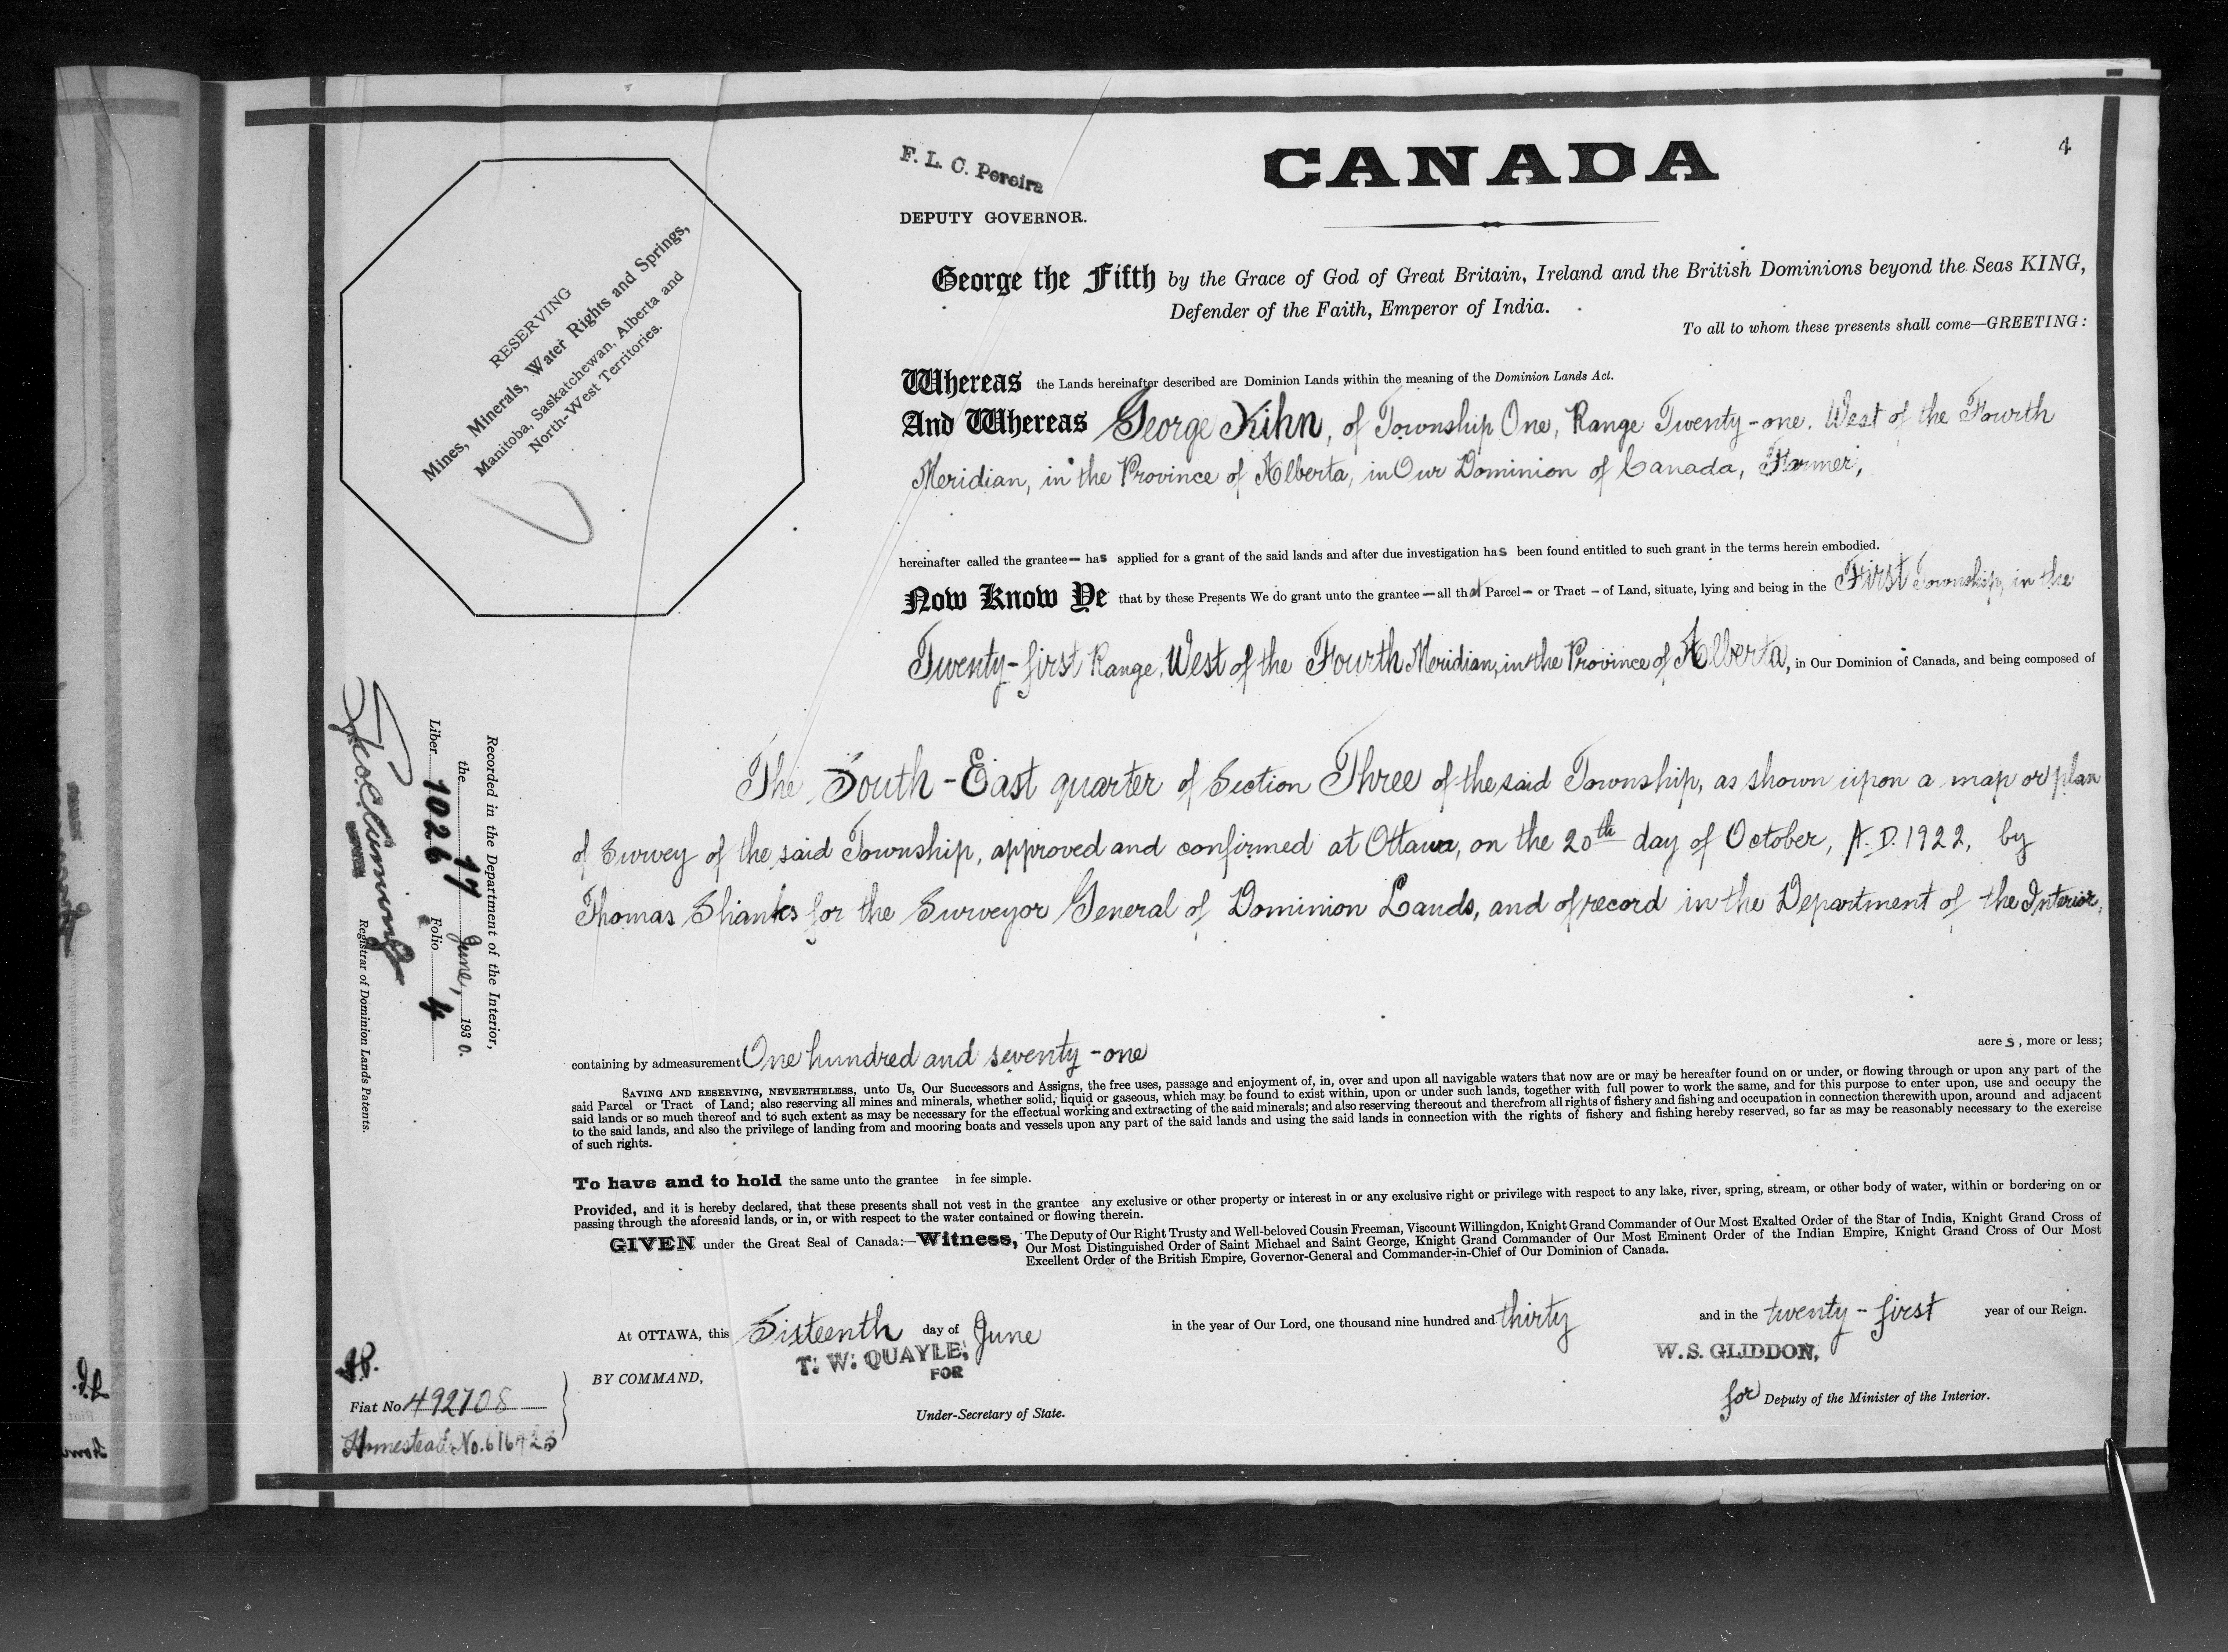 4
F. L. C. Pereira
CANADA
DEPUTY GOVERNOR.
RESERVING
Mines, Minerals, Water Rights and Springs,
Manitoba, Saskatchewan, Alberta and
North-West Territories.
George the Fifth by the Grace of God of Great Britain, Ireland and the British Dominions beyond the Seas KING,
Defender of the Faith, Emperor of India.
To all to whom these presents shall come—GREETING:
Whereas the Lands hereinafter described are Dominion Lands within the meaning of the Dominion Lands Act.
And Whereas George Kihn, of Township One, Range Twenty-one, West of the Fourth
Meridian, in the Province of Alberta, in Our Dominion of Canada, Farmer,
hereinafter called the grantee— has applied for a grant of the said lands and after due investigation has been found entitled to such grant in the terms herein embodied.
Now Know Ye that by these Presents We do grant unto the grantee — all that Parcel — or Tract — of Land, situate, lying and being in the First Township, in the
Twenty-first Range, West of the Fourth Meridian, in the Province of Alberta, in Our Dominion of Canada, and being composed of
The South-East quarter of Section Three of the said Township, as shown upon a map or plan
of Survey of the said Township, approved and confirmed at Ottawa, on the 20th day of October, A.D. 1922, by
Thomas Shanks for the Surveyor General of Dominion Lands, and of record in the Department of the Interior,
containing by admeasurement One hundred and seventy-one acres, more or less;
SAVING AND RESERVING, NEVERTHELESS, unto Us, Our Successors and Assigns, the free uses, passage and enjoyment of, in, over and upon all navigable waters that now are or may be hereafter found on or under, or flowing through or upon any part of the
said Parcel or Tract of Land; also reserving all mines and minerals, whether solid, liquid or gaseous, which may be found to exist within, upon or under such lands, together with full power to work the same, and for this purpose to enter upon, use and occupy the
said lands or so much thereof and to such extent as may be necessary for the effectual working and extracting of the said minerals; and also reserving thereout and therefrom all rights of fishery and fishing and occupation in connection therewith upon, around and adjacent
to the said lands, and also the privilege of landing from and mooring boats and vessels upon any part of the said lands and using the said lands in connection with the rights of fishery and fishing hereby reserved, so far as may be reasonably necessary to the exercise
of such rights.
To have and to hold the same unto the grantee in fee simple.
Provided, and it is hereby declared, that these presents shall not vest in the grantee any exclusive or other property or interest in or any exclusive right or privilege with respect to any lake, river, spring, stream, or other body of water, within or bordering on or
passing through the aforesaid lands, or in, or with respect to the water contained or flowing therein.
GIVEN under the Great Seal of Canada:—Witness, The Deputy of Our Right Trusty and Well-beloved Cousin Freeman, Viscount Willingdon, Knight Grand Commander of Our Most Exalted Order of the Star of India, Knight Grand Cross of
Our Most Distinguished Order of Saint Michael and Saint George, Knight Grand Commander of Our Most Eminent Order of the Indian Empire, Knight Grand Cross of Our Most
Excellent Order of the British Empire, Governor-General and Commander-in-Chief of Our Dominion of Canada.
At OTTAWA, this Sixteenth day of June in the year of Our Lord, one thousand nine hundred and thirty and in the twenty-first year of our Reign.
T. W. QUAYLE,
FOR
W. S. GLIDDON,
BY COMMAND,
Under-Secretary of State.
for Deputy of the Minister of the Interior.
Fiat No. 492708
Homestead No. 616423
Recorded in the Department of the Interior,
the 17 June, 1930.
Liber 1026 Folio 4
Registrar of Dominion Lands Patents.